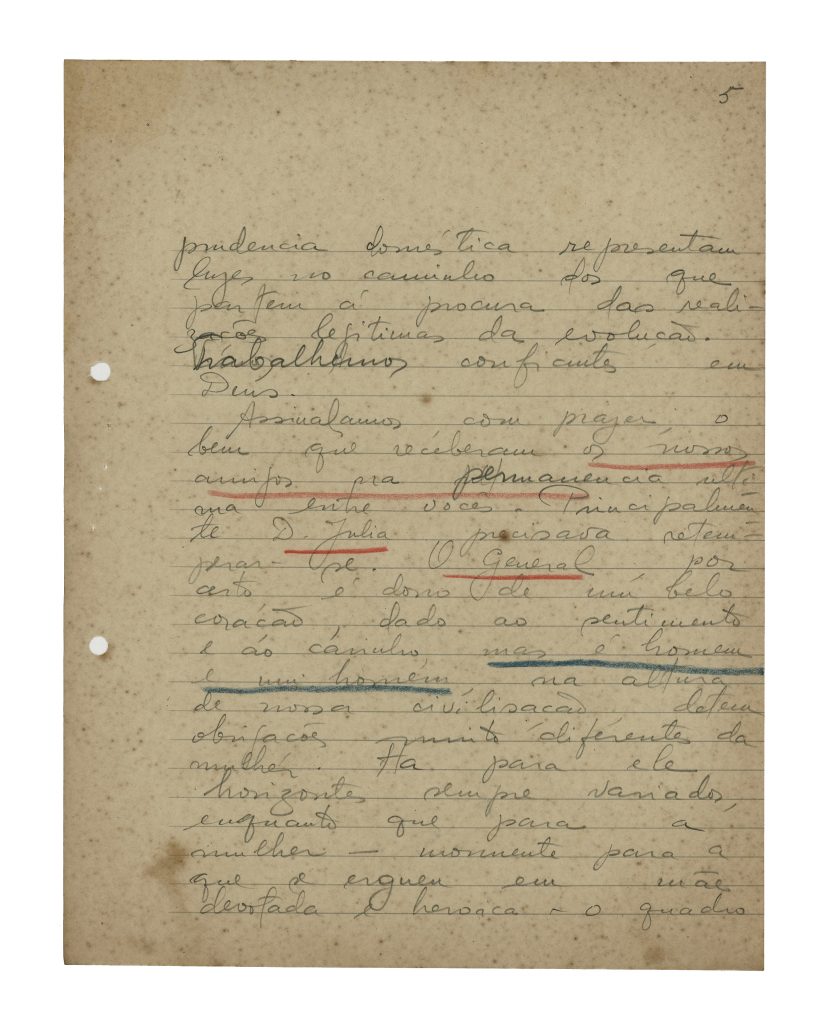 5
prudencia doméstica representam
luzes no caminho dos que
partem á procura das reali-
zações legitimas da evolução.
Trabalhemos confiantes em
Deus.
Assinalamos com prazer o
bem que receberam os nossos
amigos na permanencia ulti-
ma entre vocês. Principalmen-
te D. Julia precisava retem-
perar-se. O General por
certo é dono de um belo
coração, dado ao sentimento
e ao carinho mas é homem
e um homem na altura
de nossa civilisação detem
obrigações muito diferentes da
mulher. Ha para ele
horizontes sempre variados,
enquanto que para a
mulher — mormente para a
que se ergueu em mãe
devotada e heroica - o quadro